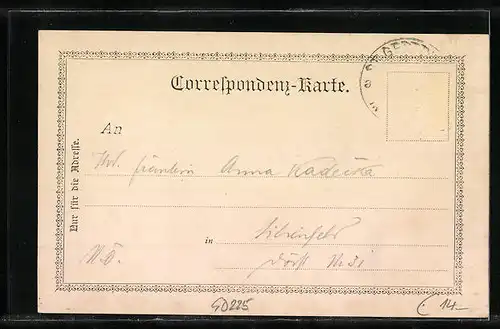 Correspondenz-Karte.
An
Nur für die Adresse.
Fräulein Anna Kadecka
in
Dorf Nr. 31
N.Ö.
GD225
14.-